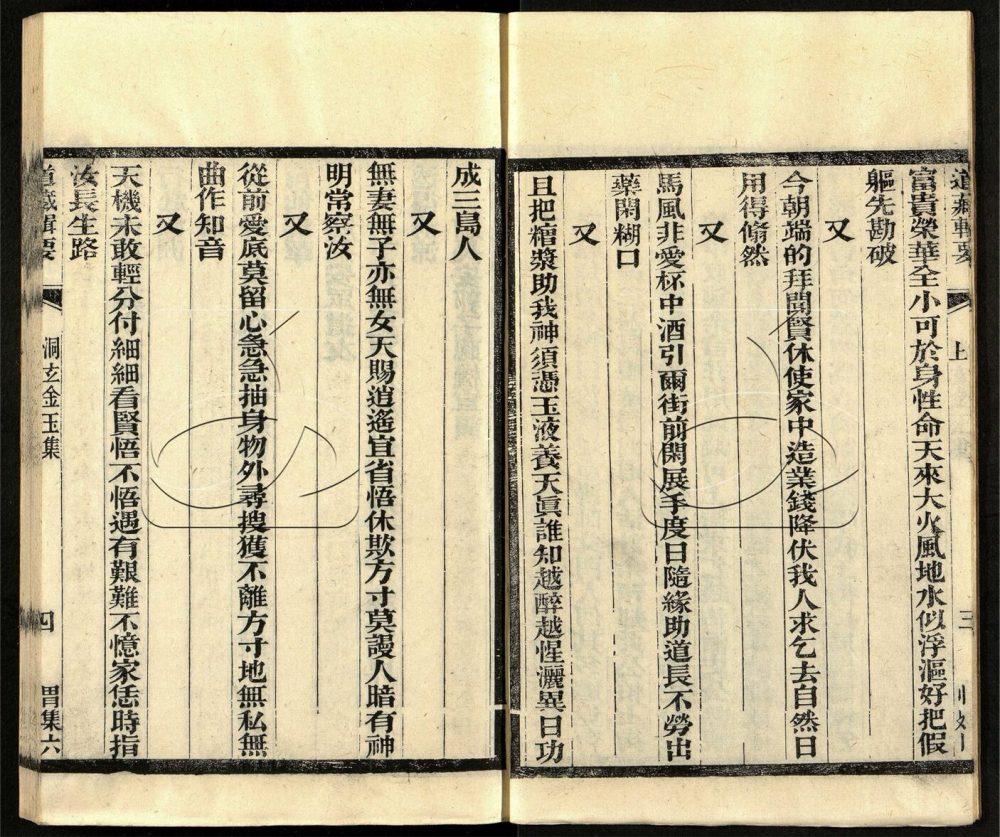 富貴榮華全小可於身性命天來大火風地水似浮漚好把假
軀先勘破
又
今朝端的拜開賢休使家中造業錢降伏我人求乞去自然日
用得翛然
又
馬風非愛杯中酒引爾街前閑展手度日隨緣助道長不勞出
藥閑糊口
又
且把糟漿助我神須憑玉液養天眞誰知越醉越惺灑異日功
成三島人
又
無妻無子亦無女天賜逍遙宜省悟休欺方寸莫謾人暗有神
明常察汝
又
從前愛底莫留心急急抽身物外尋搜獲不離方寸地無私無
曲作知音
又
天機未敢輕分付細細看賢悟不悟遇有艱難不憶家恁時指
汝長生路
道藏輯要
洞玄金玉集
四
胃集六